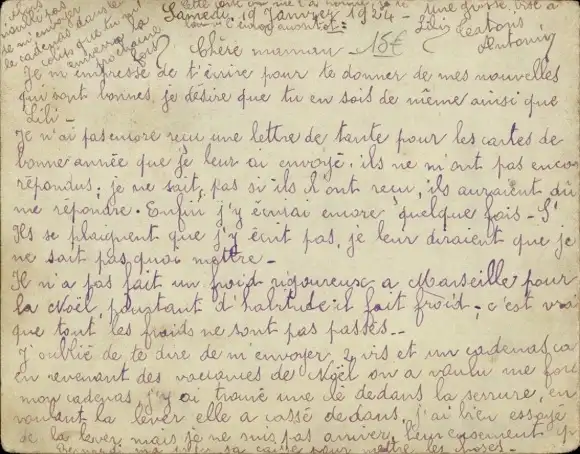 de m'envoyer
le cadenas dans le
colis que tu m'
enverra la
prochaine
fois
Samedi, 19 Janvier 1924 -
Une grosse bise à
Lili Gaston
Antonin
Chère maman 15€
Je m'empresse de t'écrire pour te donner de mes nouvelles
qui sont bonnes, je désire que tu en sois de même ainsi que
Lili -
Je n'ai pas encore reçu une lettre de tante pour les cartes de
bonne année que je leur ai envoyé. ils ne m'ont pas encore
répondus; je ne sait, pas si ils l'ont reçu, ils auraient dû
me répondre. Enfin j'y écrirai encore quelque fois - S'
Ils se plaignent que j'y écrit pas, je leur diraient que je
ne sait pas quoi mettre -
Il n'a pas fait un froid rigoureux a Marseille pour
la Noël, pourtant d'habitude il fait froid, c'est vrai
que tout les froids ne sont pas passés --
J'oublié de te dire de m'envoyer 2 vis et un cadenas ca
en revenant des vacances de Noël on a voulu me
mon cadenas, j'y ai trouvé une clé dedans la serrure, en
voulant la lever elle a cassé dedans, j'ai bien essayé
de la lever, mais je ne suis pas arriver, heureusement